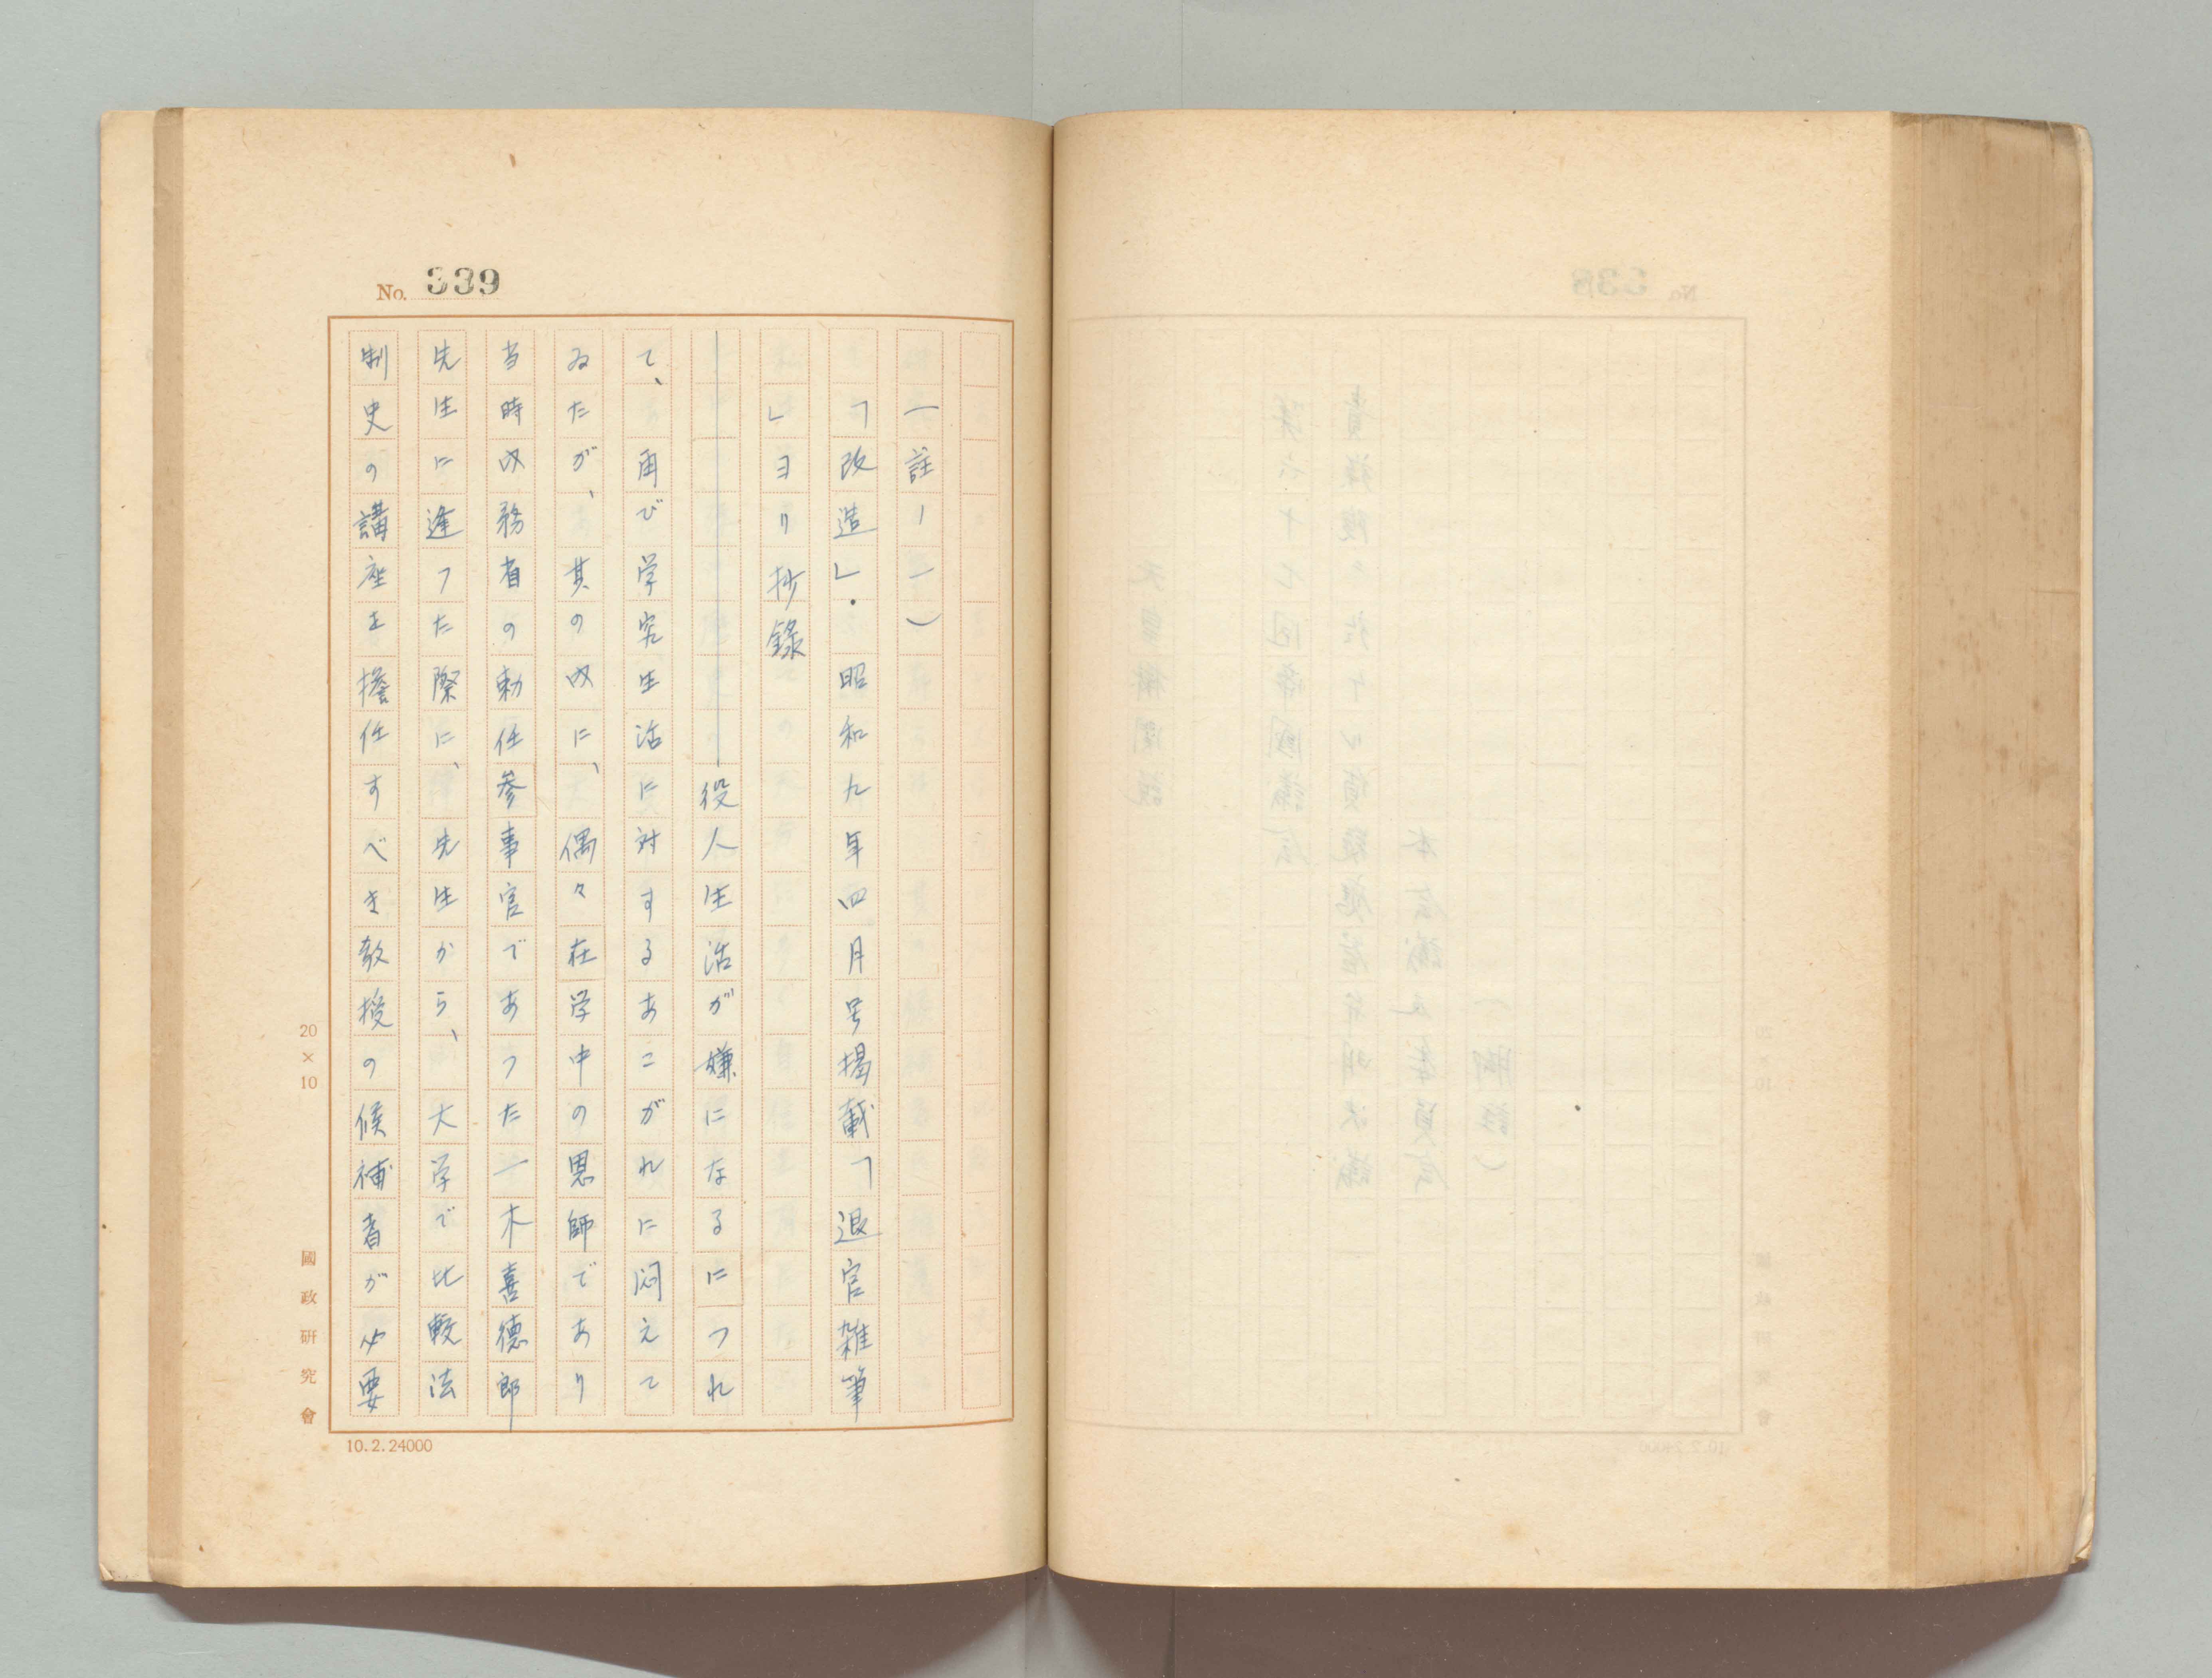 No. 339
(註一一)
「改造」・昭和九年四月号掲載「退官雑筆
」ヨリ抄録
――役人生活が嫌になるにつれ
て、再び学究生活に対するあこがれに悶えて
ゐたが、其の内に、偶々在学中の恩師であり
当時内務省の勅任参事官であつた一木喜徳郎
先生に逢つた際に、先生から、大学で比較法
制史の講座を擔任すべき教授の候補者が必要
20×10
國政研究會
10.2.24000